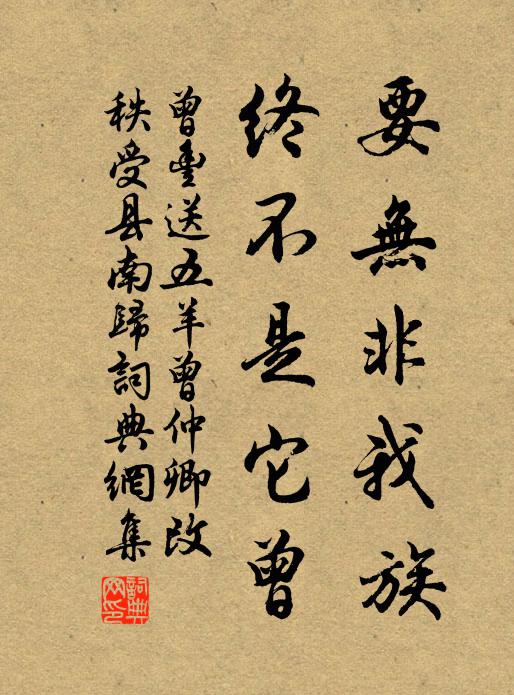 要無非我族
終不是它曾
曾豐送五羊曾仲卿改
秩受县南歸詞典網集
詞典網印